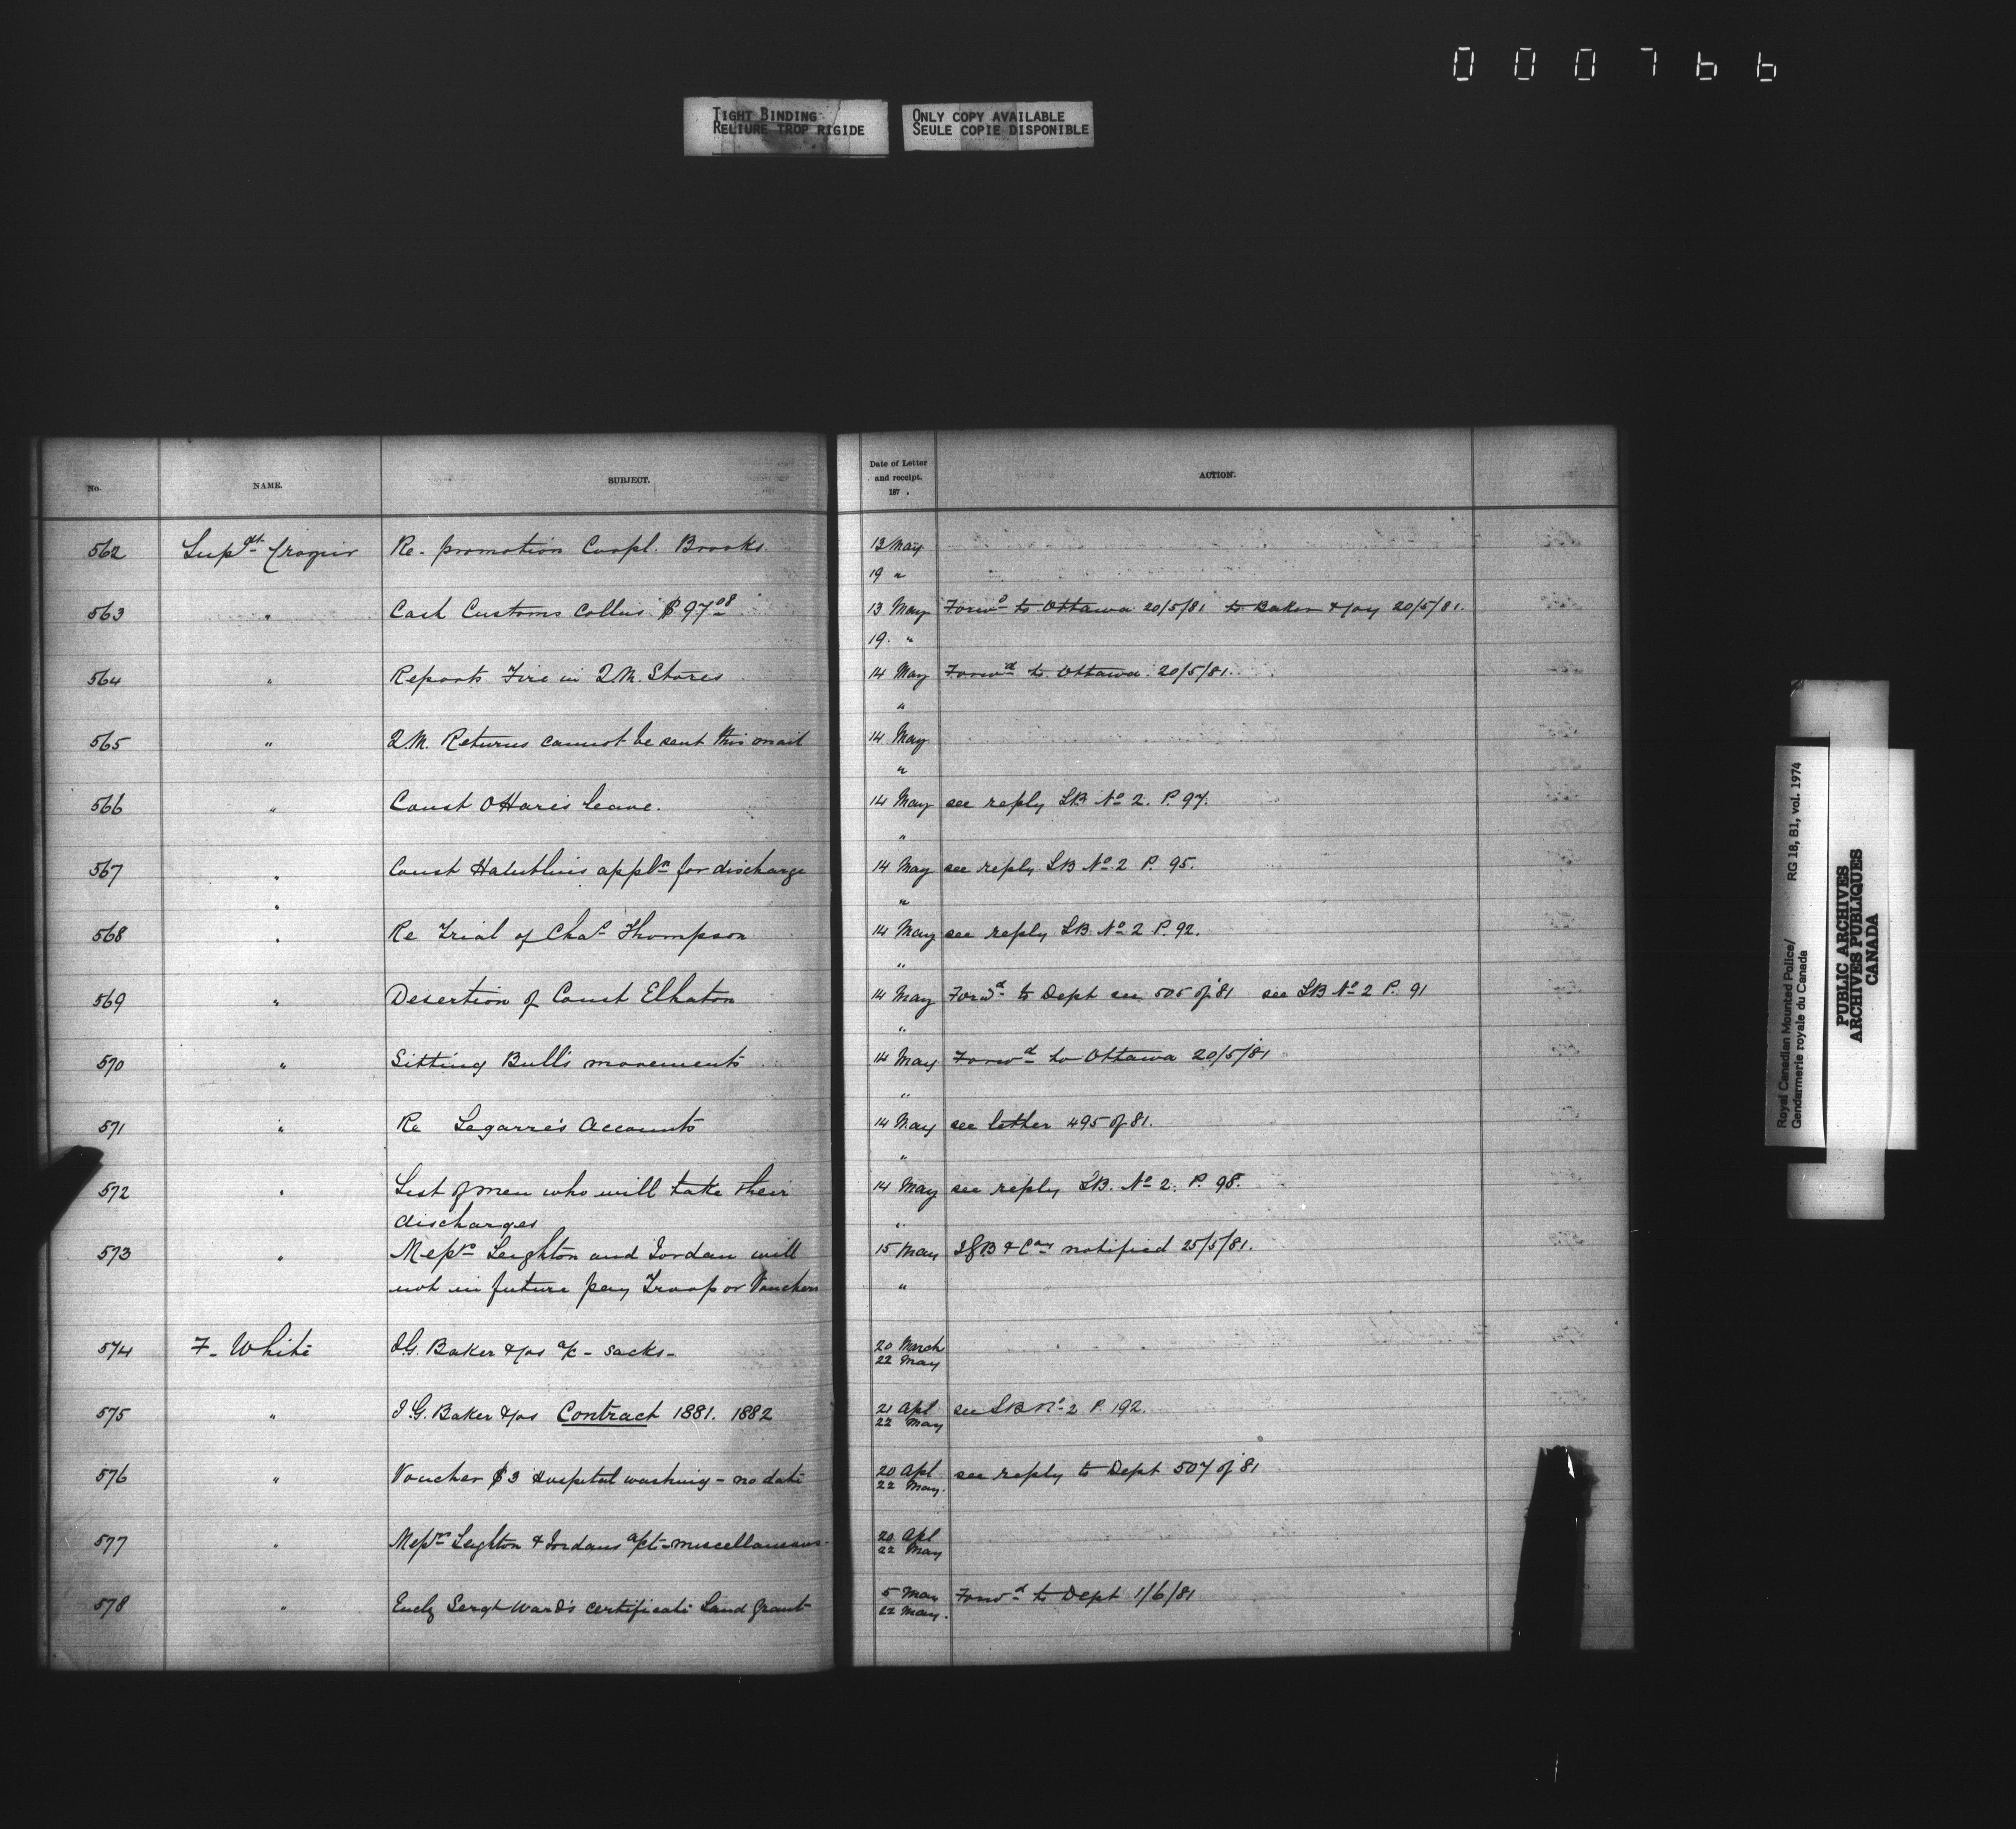 000766
TIGHT BINDING
RELIURE TROP RIGIDE
ONLY COPY AVAILABLE
SEULE COPIE DISPONIBLE
No. NAME. SUBJECT. Date of Letter and receipt. 187 . ACTION.
562 Supdt Crozier Re- promotion Corpl. Brooks 13 May
19 "
563 " Cash Customs Collns $97 08 13 May Forwd to Ottawa 20/5/81 to Baker & Coy 20/5/81.
19. "
564 " Reports Fire in Q.M. Stores 14 May Forwd to Ottawa 20/5/81.
"
565 " Q.M. Returns cannot be sent this mail 14 May
"
566 " Const OHares leave. 14 May see reply LB No 2. P. 97.
"
567 " Const appln for discharge 14 May see reply LB No 2 P. 95.
" "
568 " Re Trial of Chas Thompson 14 May see reply LB No 2 P. 92.
"
569 " Desertion of Const Elhaton 14 May Forwd to Dept see 505 of 81 see LB No 2 P. 91
"
570 " Sitting Bulls movements 14 May Forwd to Ottawa 20/5/81
"
571 " Re Legarre's Accounts 14 May see letter 495 of 81.
"
572 " List of men who will take their 14 May see reply LB. No 2. P. 98.
discharges "
573 " Messrs Leighton and Jordan will 15 May IGB & Coy notified 25/5/81.
not in future pay Troop or Vouchers "
574 F. White I.G. Baker & Cos a/c - sacks - 20 March
22 May
575 " I.G. Baker & Cos Contract 1881. 1882 21 Apl see LB No 2 P. 192.
22 May
576 " Voucher $3 Hospital washing - no date 20 Apl see reply to Dept 507 of 81
22 May.
577 " Messrs Leighton & Jordans accts - miscellaneous - 20 Apl
22 May
578 " Encly Sergt Ward's certificate Land Grant 5 May Forwd to Dept 1/6/81
22 May.
Royal Canadian Mounted Police/ RG 18, B1, vol. 1974
Gendarmerie royale du Canada
PUBLIC ARCHIVES
ARCHIVES PUBLIQUES
CANADA